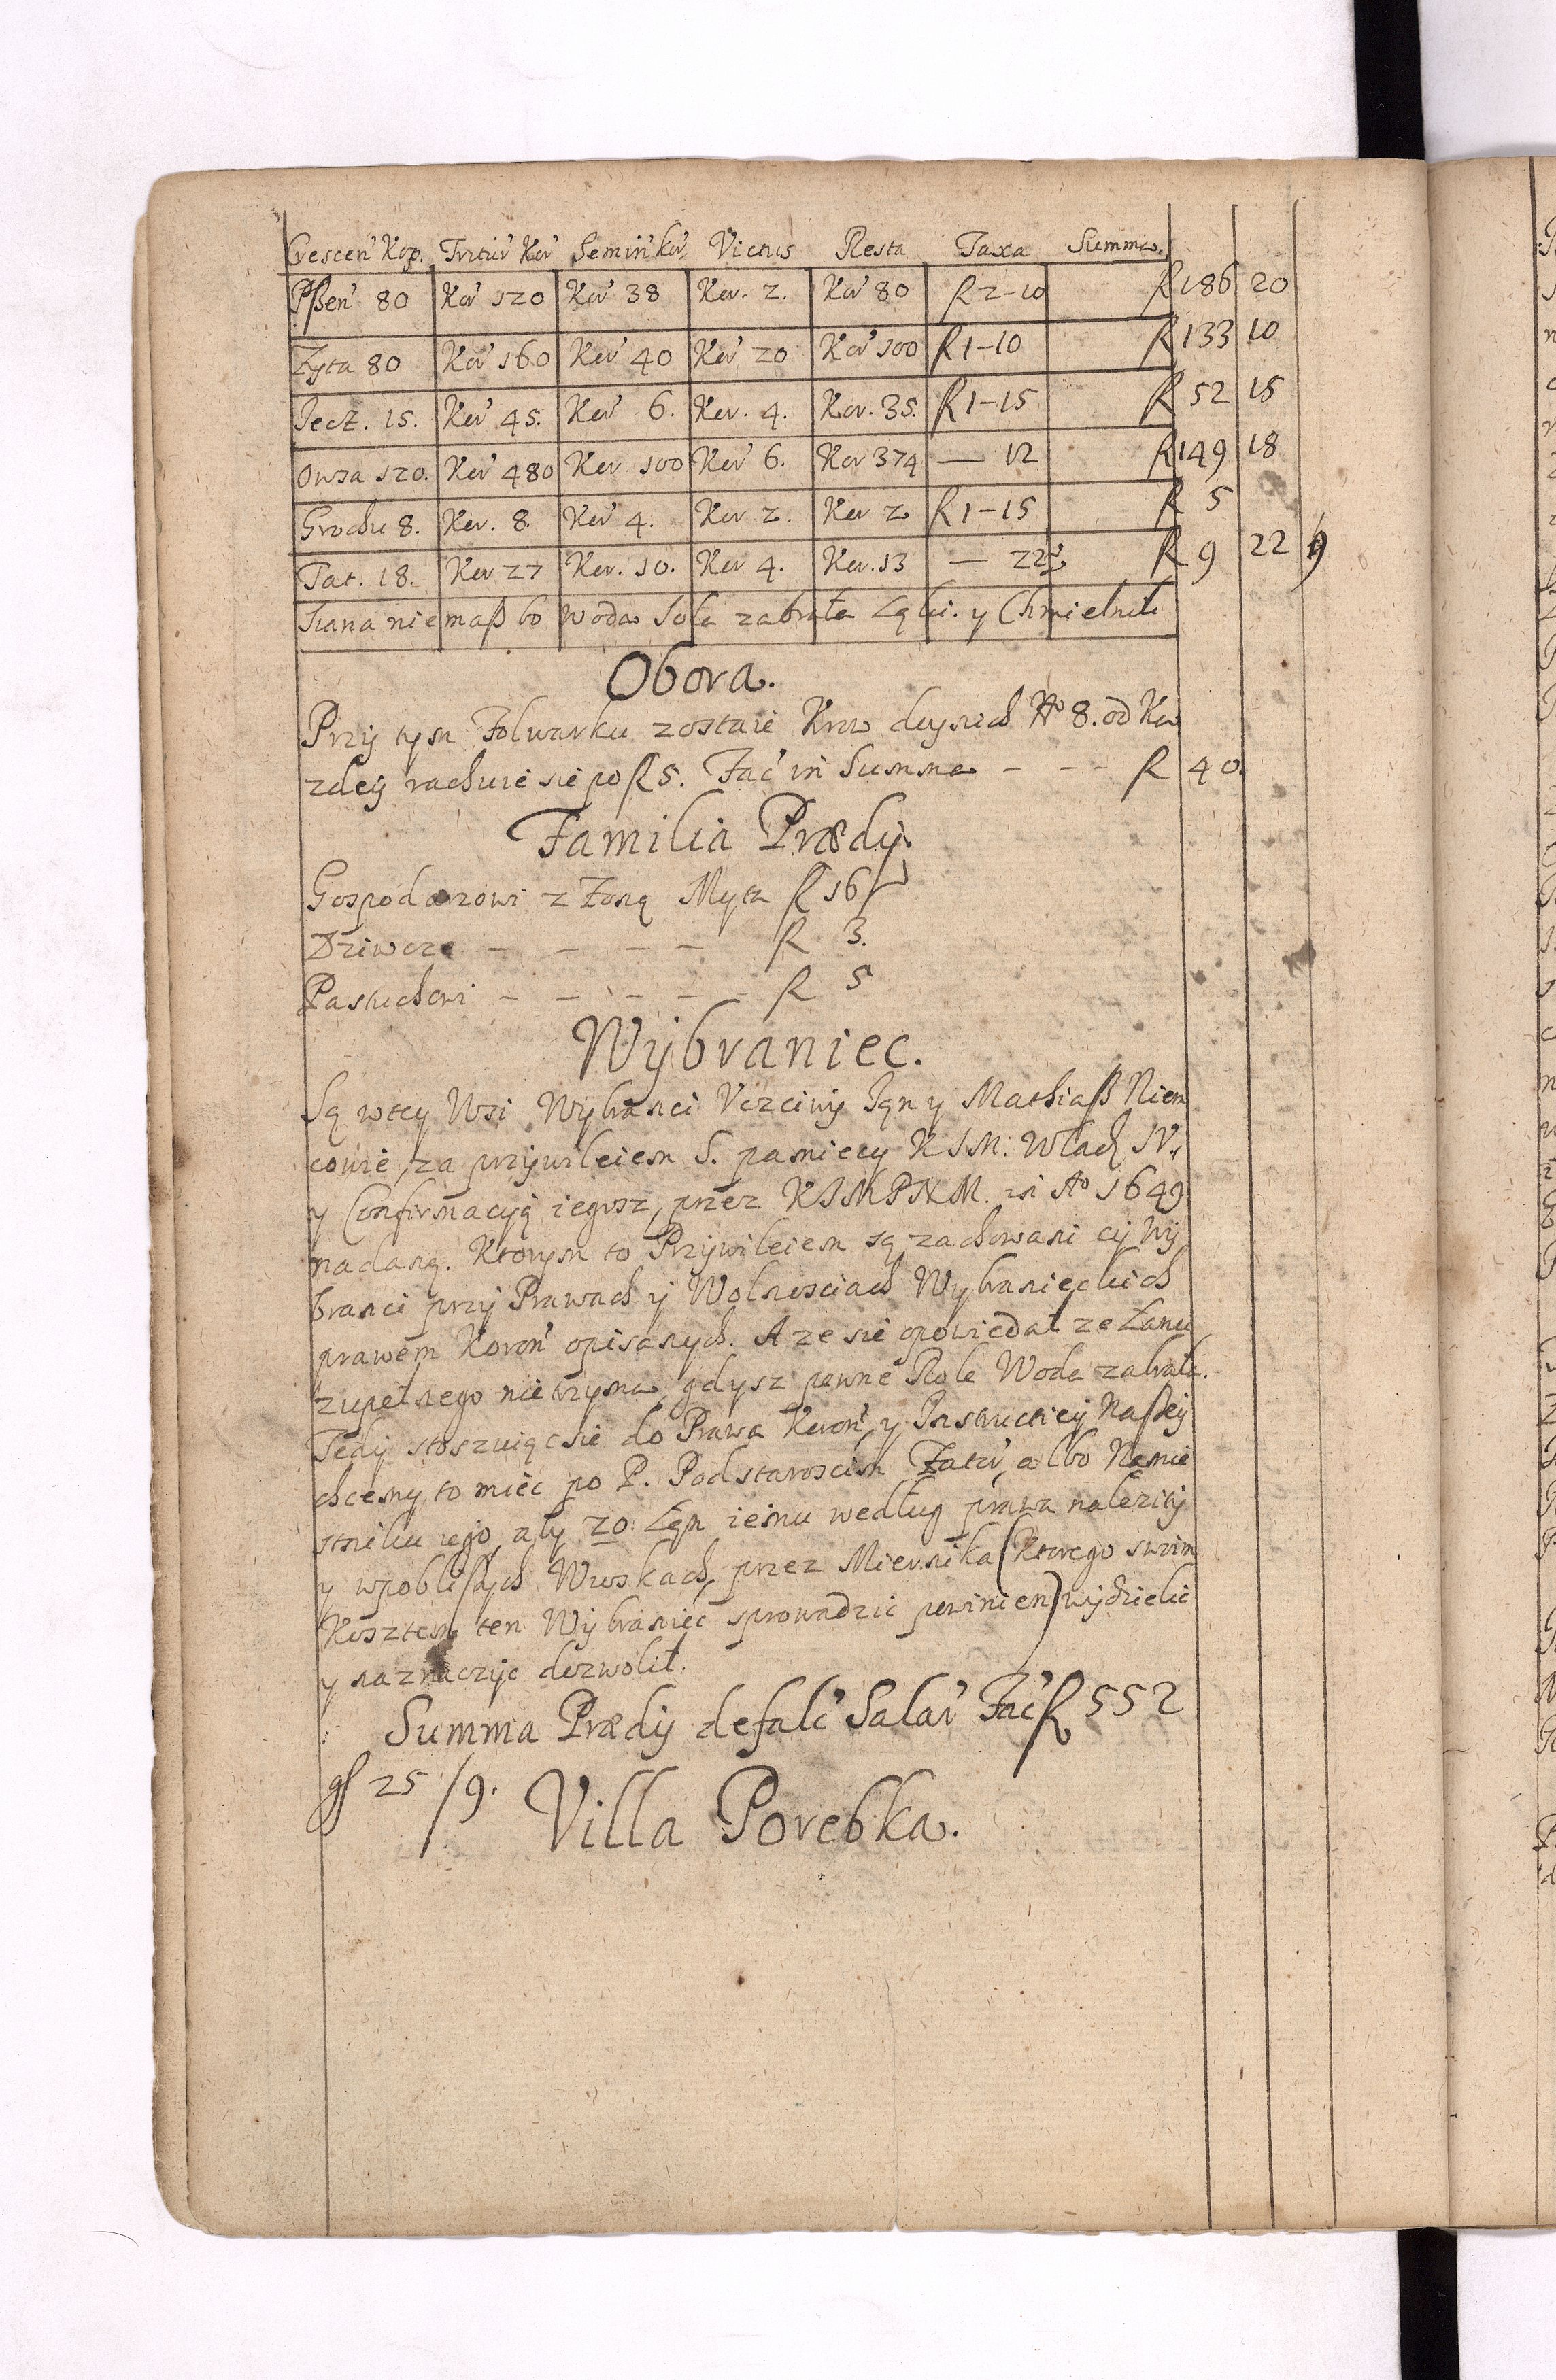 Crescen' Kop. Tritur' Kor' Semin' kor' Victus Resta Taxa Summa.
Pßen' 80 Kor' 120 Kor' 38 Kor. 2. Kor' 80 f 2-10 f 186 20
Zyta 80 Kor' 160 Kor' 40 Kor' 20 Kor' 100 f 1-10 f 133 10
Jęcz. 15. Kor' 45. Kor' 6. Kor. 4. Kor. 35. f 1-15 f 52 15
Owsa 120. Kor' 480 Kor 100 Kor' 6. Kor 374 — 12 f 149 18
Grochu 8. Kor. 8. Kor' 4. Kor 2. Kor 2 f 1-15 f 5
Tat. 18. Kor 27 Kor. 10. Kor 4. Kor. 13 — 22 f 9 22 9
Siana niemaß bo woda Sola zabrała Łąki. y Chmielnik
Obora.
Przy tym Folwarku zostaie Krow doynich No 8. od Ka
zdey rachuie sie po f 5. Fac' in Summa - - - f 40.
Familia Prædij.
Gospodarzowi z Zoną Myta f 16
Dziwcze - - - - f 3.
Pastuchowi - - - - - f 5
Wybraniec.
Są wtey Wsi Wybranci Vczciwy Jan y Mathiaß Niem
cowie, za przywileiem S. pamięcy K I M: Wlad IV.
y Confirmacyą iegosz, przez K I M P N M. in Ao 1649
nadaną. Ktorym to Przywileiem są zachowani cy Wy
branci przy Prawach y Wolnosciach Wybranieckich
prawem Koron' opisanych. A ze sie opowiedał ze Łanu
zupełnego nie trzyma, gdysz pewne Role Woda zabrała.
Tedy stoszuiąc sie do Prawa Koron' y Instructiey Naßey
chcemy to miec po P. Podstaroscim Zator' albo Namie
stniku iego, aby 20. Łan iemu według prawa nalezity
y wpoblißych Wuskach, przez Miernika (ktorego swzim
Kosztem ten Wybraniec sprowadzic powinien) wydzielic
y naznaczyc dozwolił.
Summa Prædij defalc' Salar' Fac' f 552
gß 25 /9.
Villa Porebka.